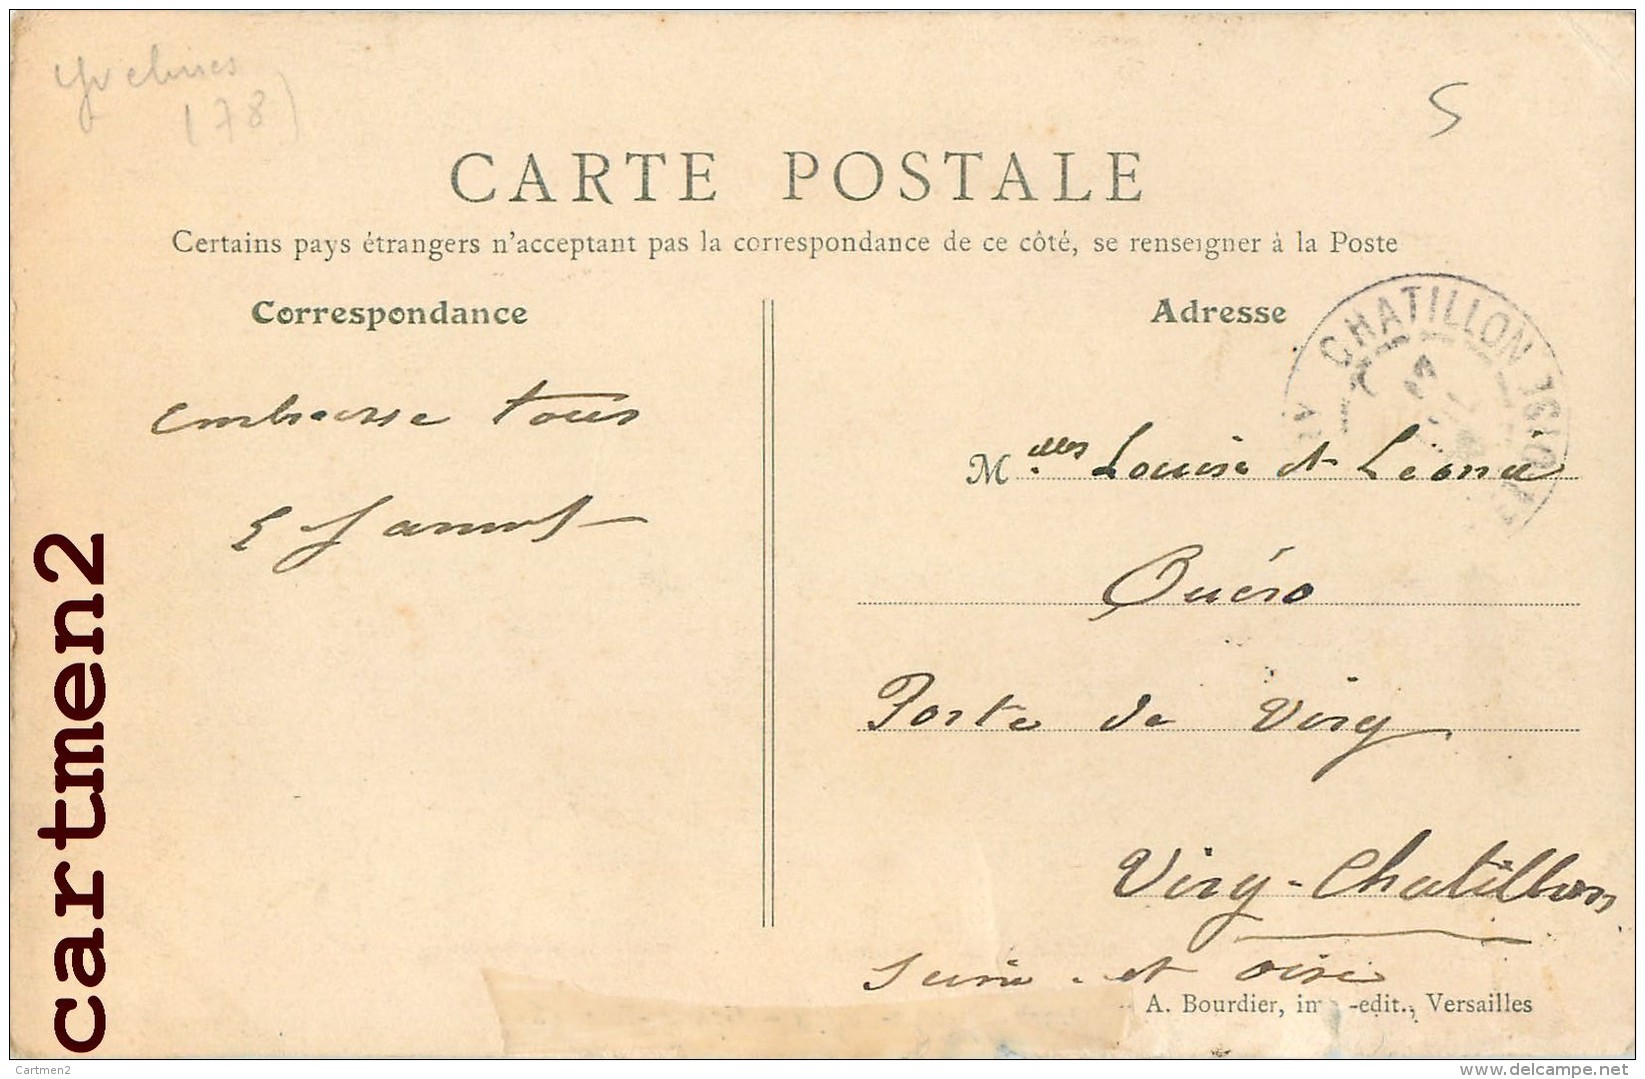 Yvelines
(78)
5
CARTE POSTALE
Certains pays étrangers n'acceptant pas la correspondance de ce côté, se renseigner à la Poste
Correspondance
Adresse
CHATILLON
embrasse tous
Melles Louise et Léonie
Quéro
Porte de Viry
Viry-Chatillon
Seine-et-oise
A. Bourdier, im -edit., Versailles
cartmen2
Cartmen2
delcampe.net